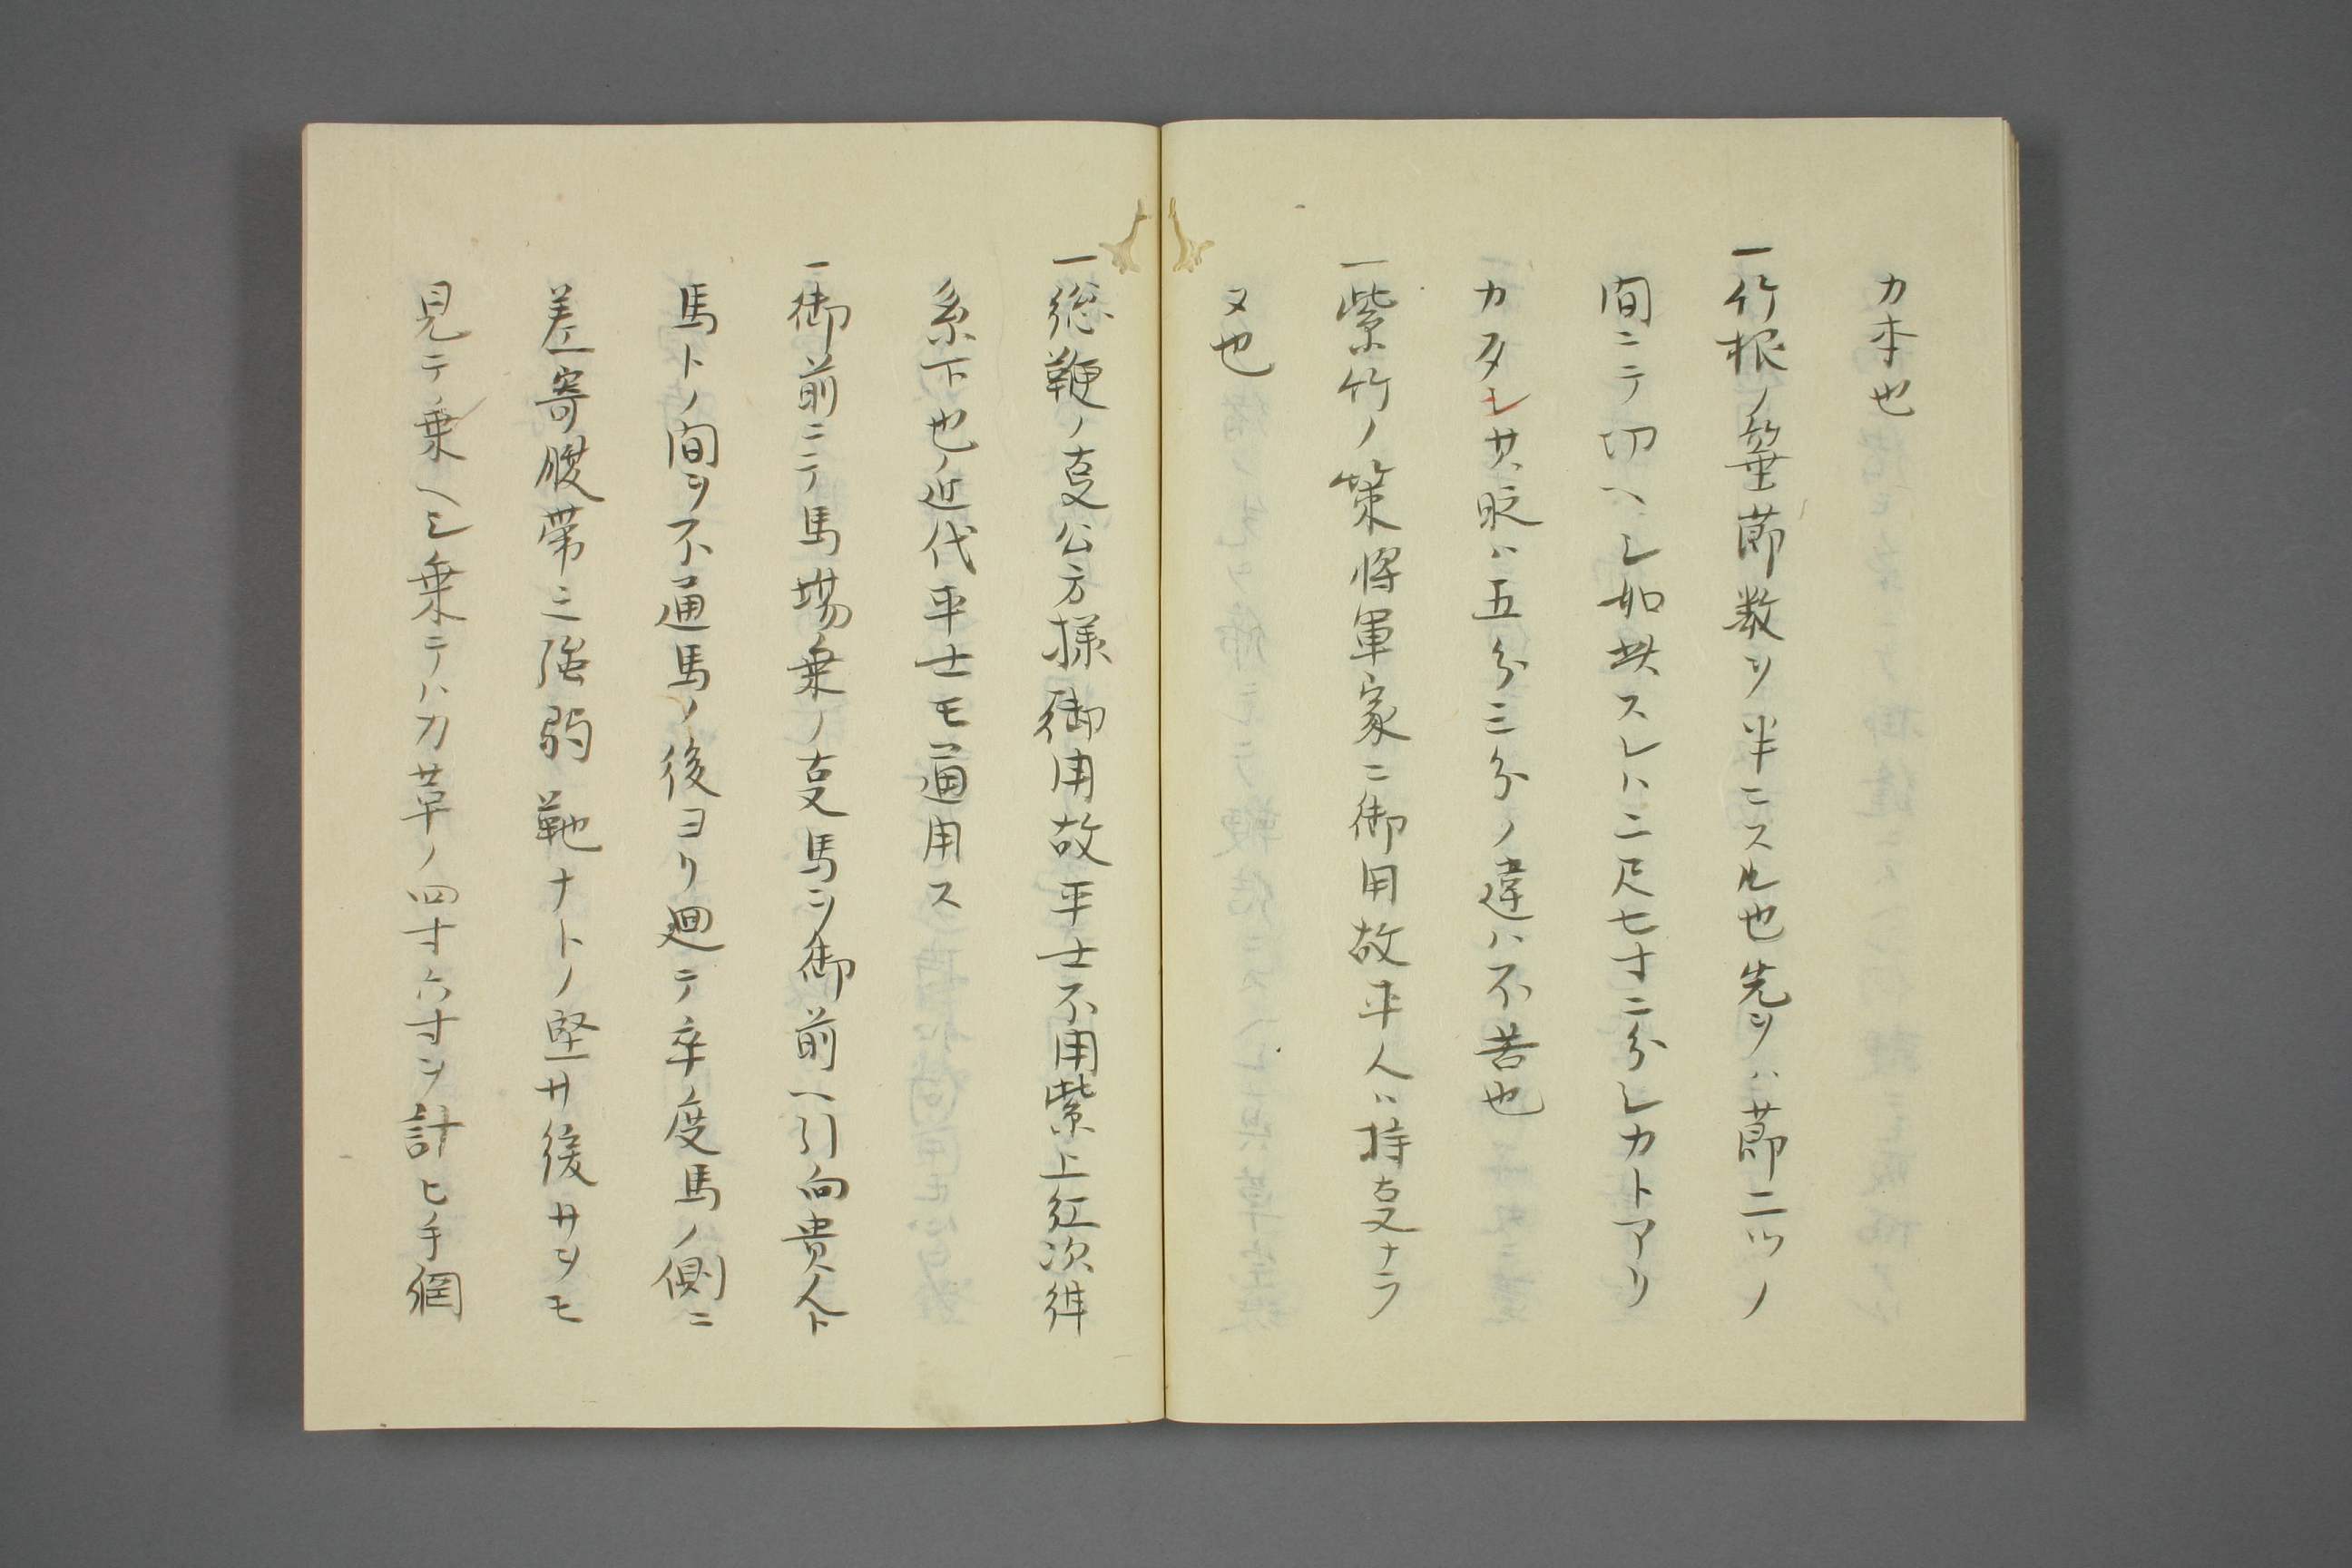 カ本也
一竹根ノ箠節数ヲ半ニスル也先ツハ節二ツノ
間ニテ切ヘシ如此スレハ二尺七寸二分シカトアリ
カタシ共眨ハ五分三分ノ違ハ不苦也
一紫竹ノ策将軍家ニ御用故平人ハ持叓ナラ
ヌ也
一総鞭ノ叓公方様御用故平士不用紫上紅次絆
糸下也近代平士モ通用ス
一御前ニテ馬場乗ノ叓馬ヲ御前ヘ引向貴人ト
馬トノ間ヲ不通馬ノ後ヨリ廻テ卒度馬ノ側ニ
差寄腹帯ニ強弱靶ナトノ堅サ緩サヲモ
見テ乗ヘシ乗テハ力革ノ四寸六寸ヲ計ヒ手綱